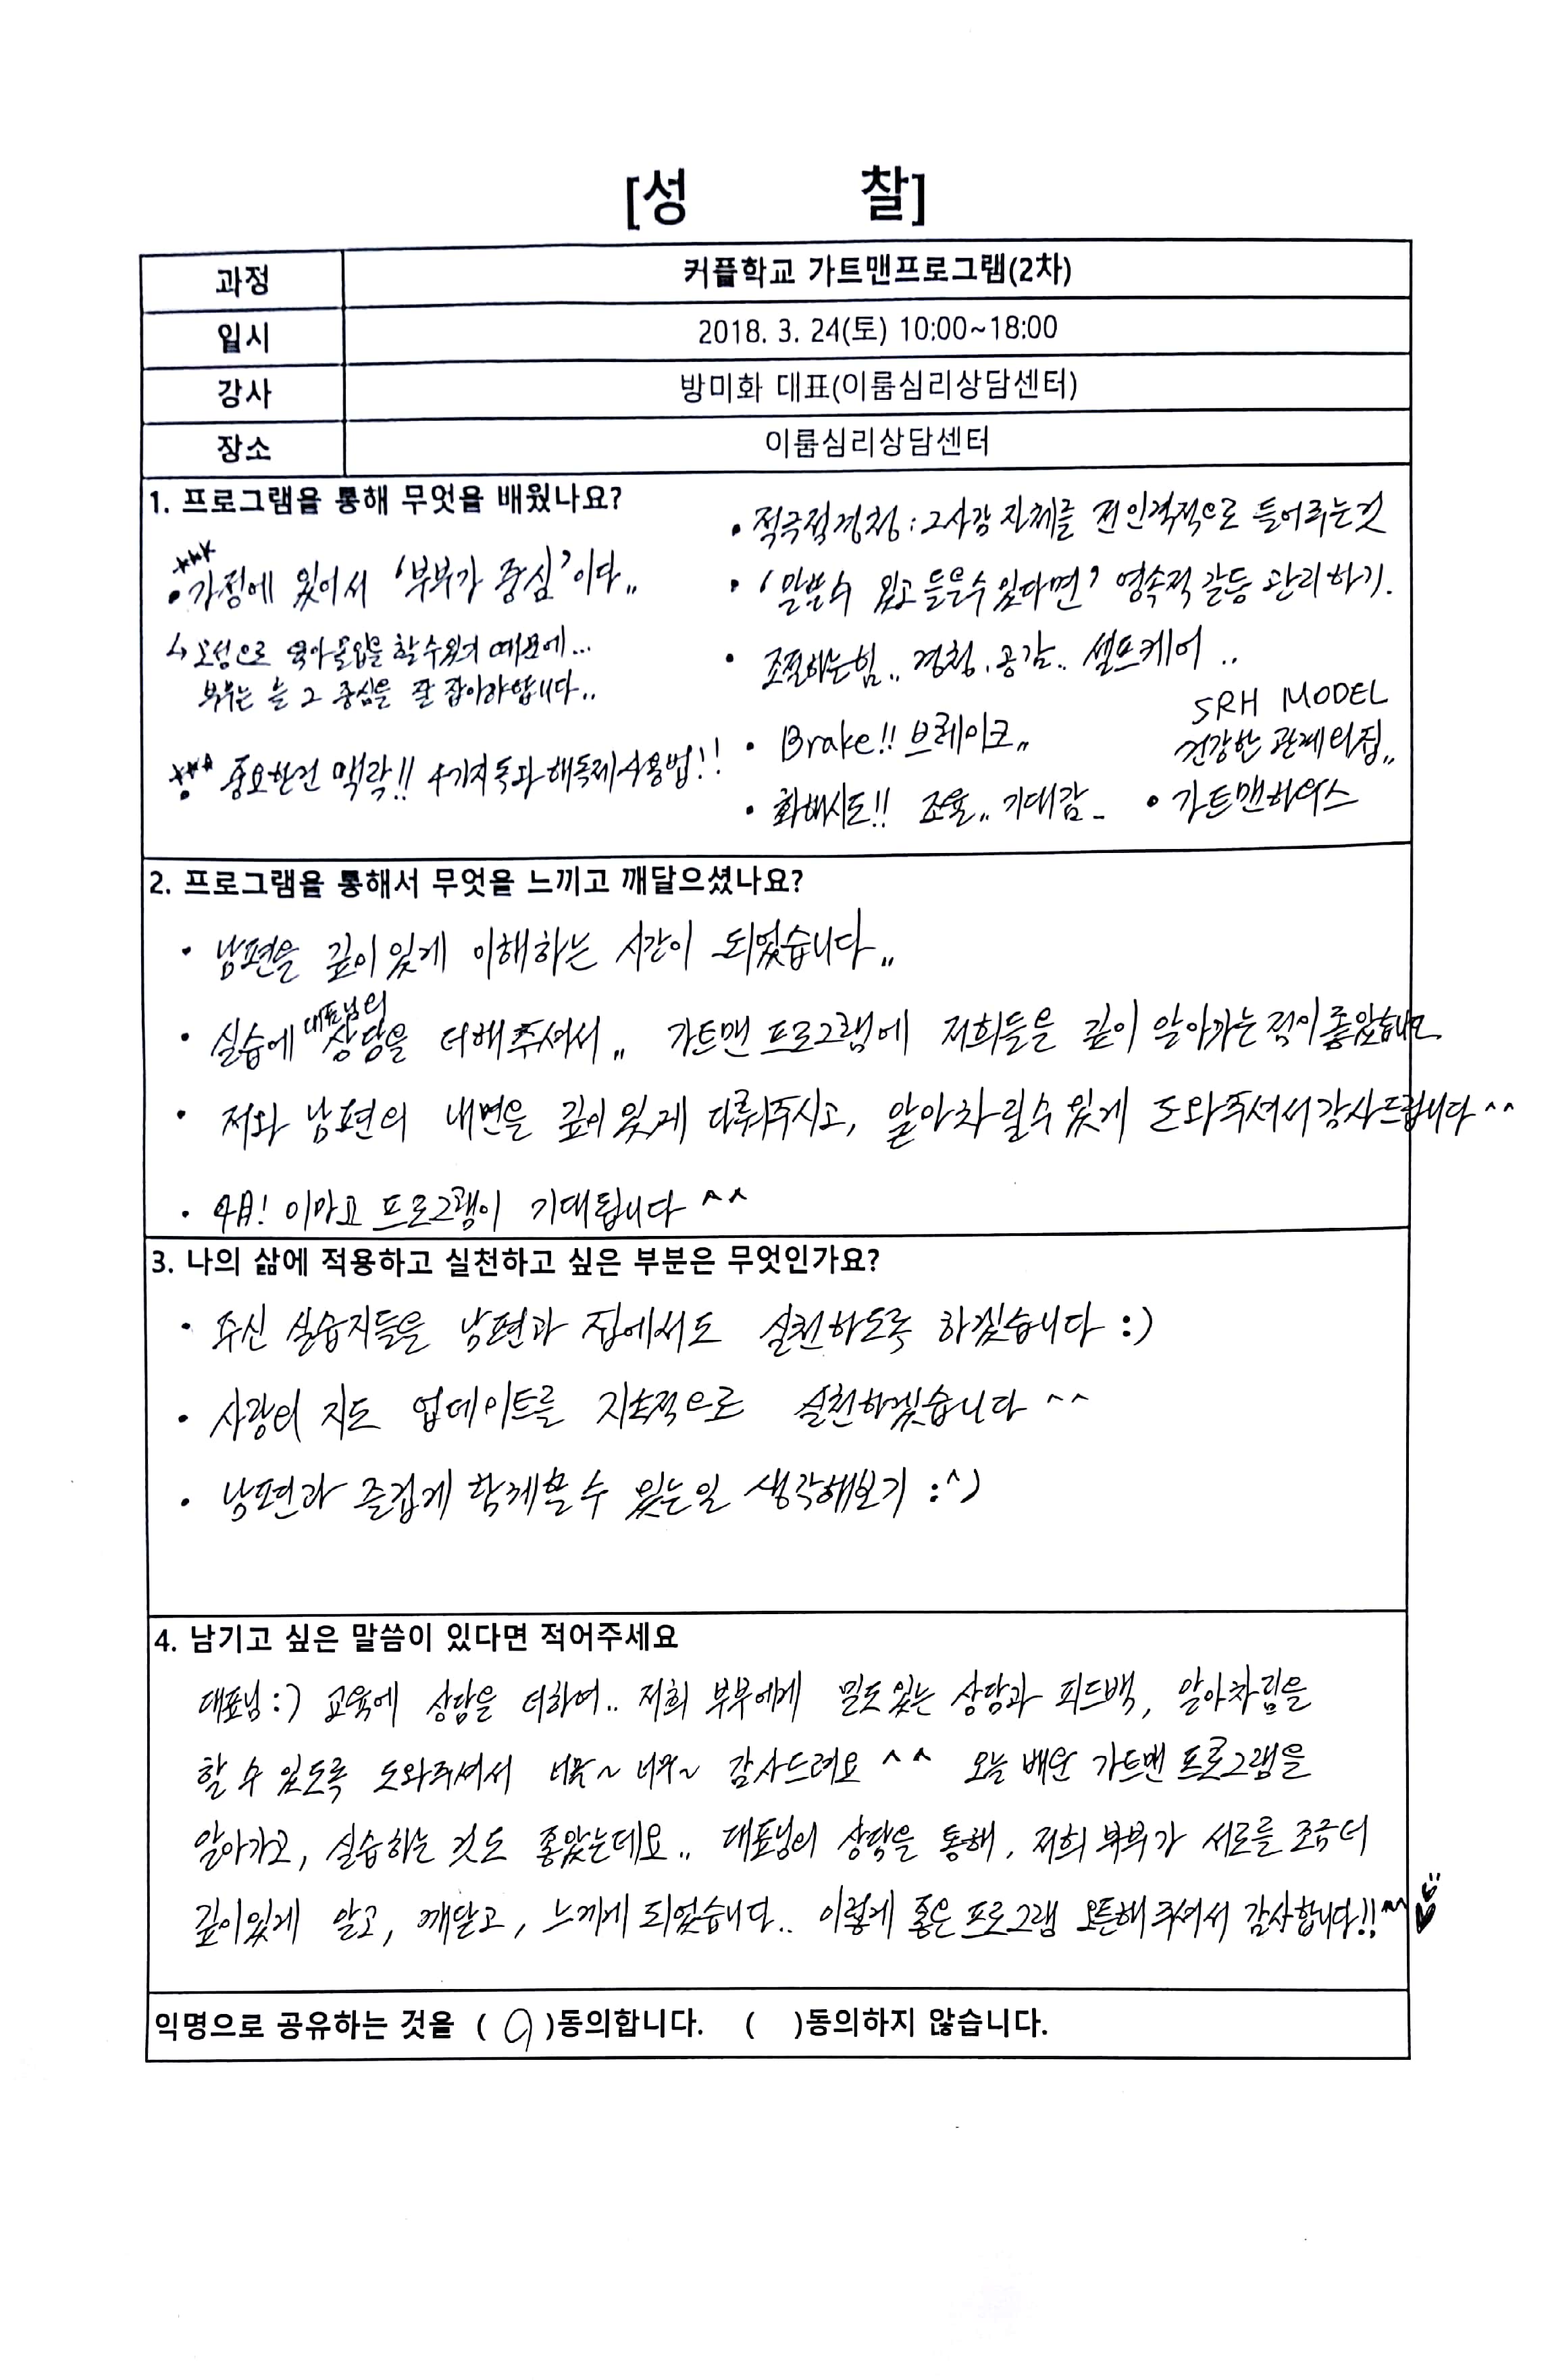 [성 찰]
과정 커플학교 가트맨프로그램(2차)
일시 2018. 3. 24(토) 10:00~18:00
강사 방미화 대표(이룸심리상담센터)
장소 이룸심리상담센터
1. 프로그램을 통해 무엇을 배웠나요?
• 가정에 있어서 '부부가 중심'이다,,
↳ 모성으로 육아몰입을 할 수 있기 때문에...
부부는 늘 그 중심을 잘 잡아야합니다..
중요한건 맥락!! 4가지 독과 해독제 사용법!!
• 적극적경청 : 그사람 자체를 전인격적으로 들어주는것
• '말할수 있고 들을수있다면' 영속적 갈등 관리하기.
• 조절하는힘.. 경청. 공감.. 셀프케어 ..
• Brake!! 브레이크,,
SRH MODEL
건강한 관계의집,,
• 화해시도!! 조율,, 기대감_
• 가트맨하우스
2. 프로그램을 통해서 무엇을 느끼고 깨달으셨나요?
• 남편을 깊이있게 이해하는 시간이 되었습니다,,
• 실습에 대표님의 상담을 더해주셔서,, 가트맨 프로그램에 저희들을 깊이 알아가는 점이 좋았습니다.
• 저와 남편의 내면을 깊이있게 다뤄주시고, 알아차릴수있게 도와주셔서 감사드립니다^^
• 4月! 이마고 프로그램이 기대됩니다 ^^
3. 나의 삶에 적용하고 실천하고 싶은 부분은 무엇인가요?
• 주신 실습지들을 남편과 집에서도 실천하도록 하겠습니다 :)
• 사랑의 지도 업데이트를 지속적으로 실천하겠습니다 ^^
• 남편과 즐겁게 함께할 수 있는일 생각해보기 :^)
4. 남기고 싶은 말씀이 있다면 적어주세요
대표님:) 교육에 상담을 더하여.. 저희 부부에게 밀도있는 상담과 피드백, 알아차림을
할 수 있도록 도와주셔서 너무~ 너무~ 감사드려요 ^^ 오늘 배운 가트맨 프로그램을
알아가고, 실습하는 것도 좋았는데요.. 대표님의 상담을 통해, 저희 부부가 서로를 조금더
깊이있게 알고, 깨닫고, 느끼게 되었습니다.. 이렇게 좋은 프로그램 오픈해 주셔서 감사합니다!!^^
익명으로 공유하는 것을 ( O )동의합니다. ( )동의하지 않습니다.